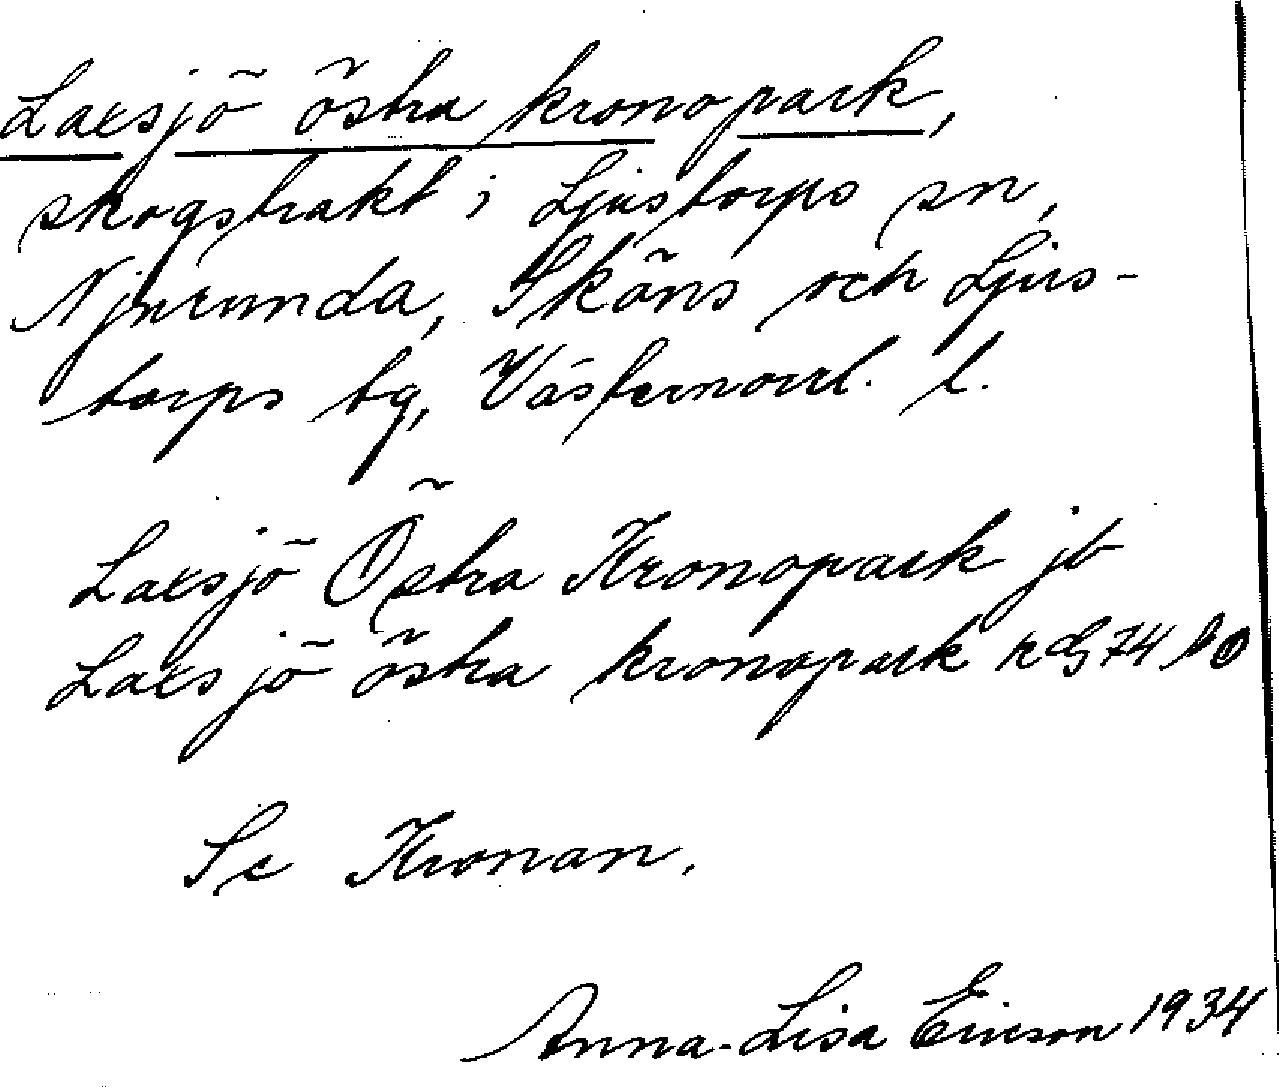 Laxsjö östra kronopark,
skogstrakt i Ljustorps sn,
Njurunda, Sköns och Ljus-
torps tg, Västernorrl. l.
Laxsjö Östra Kronopark jb
Laxsjö östra kronopark
Se Kronan.
Anna-Lisa Ericson 1934